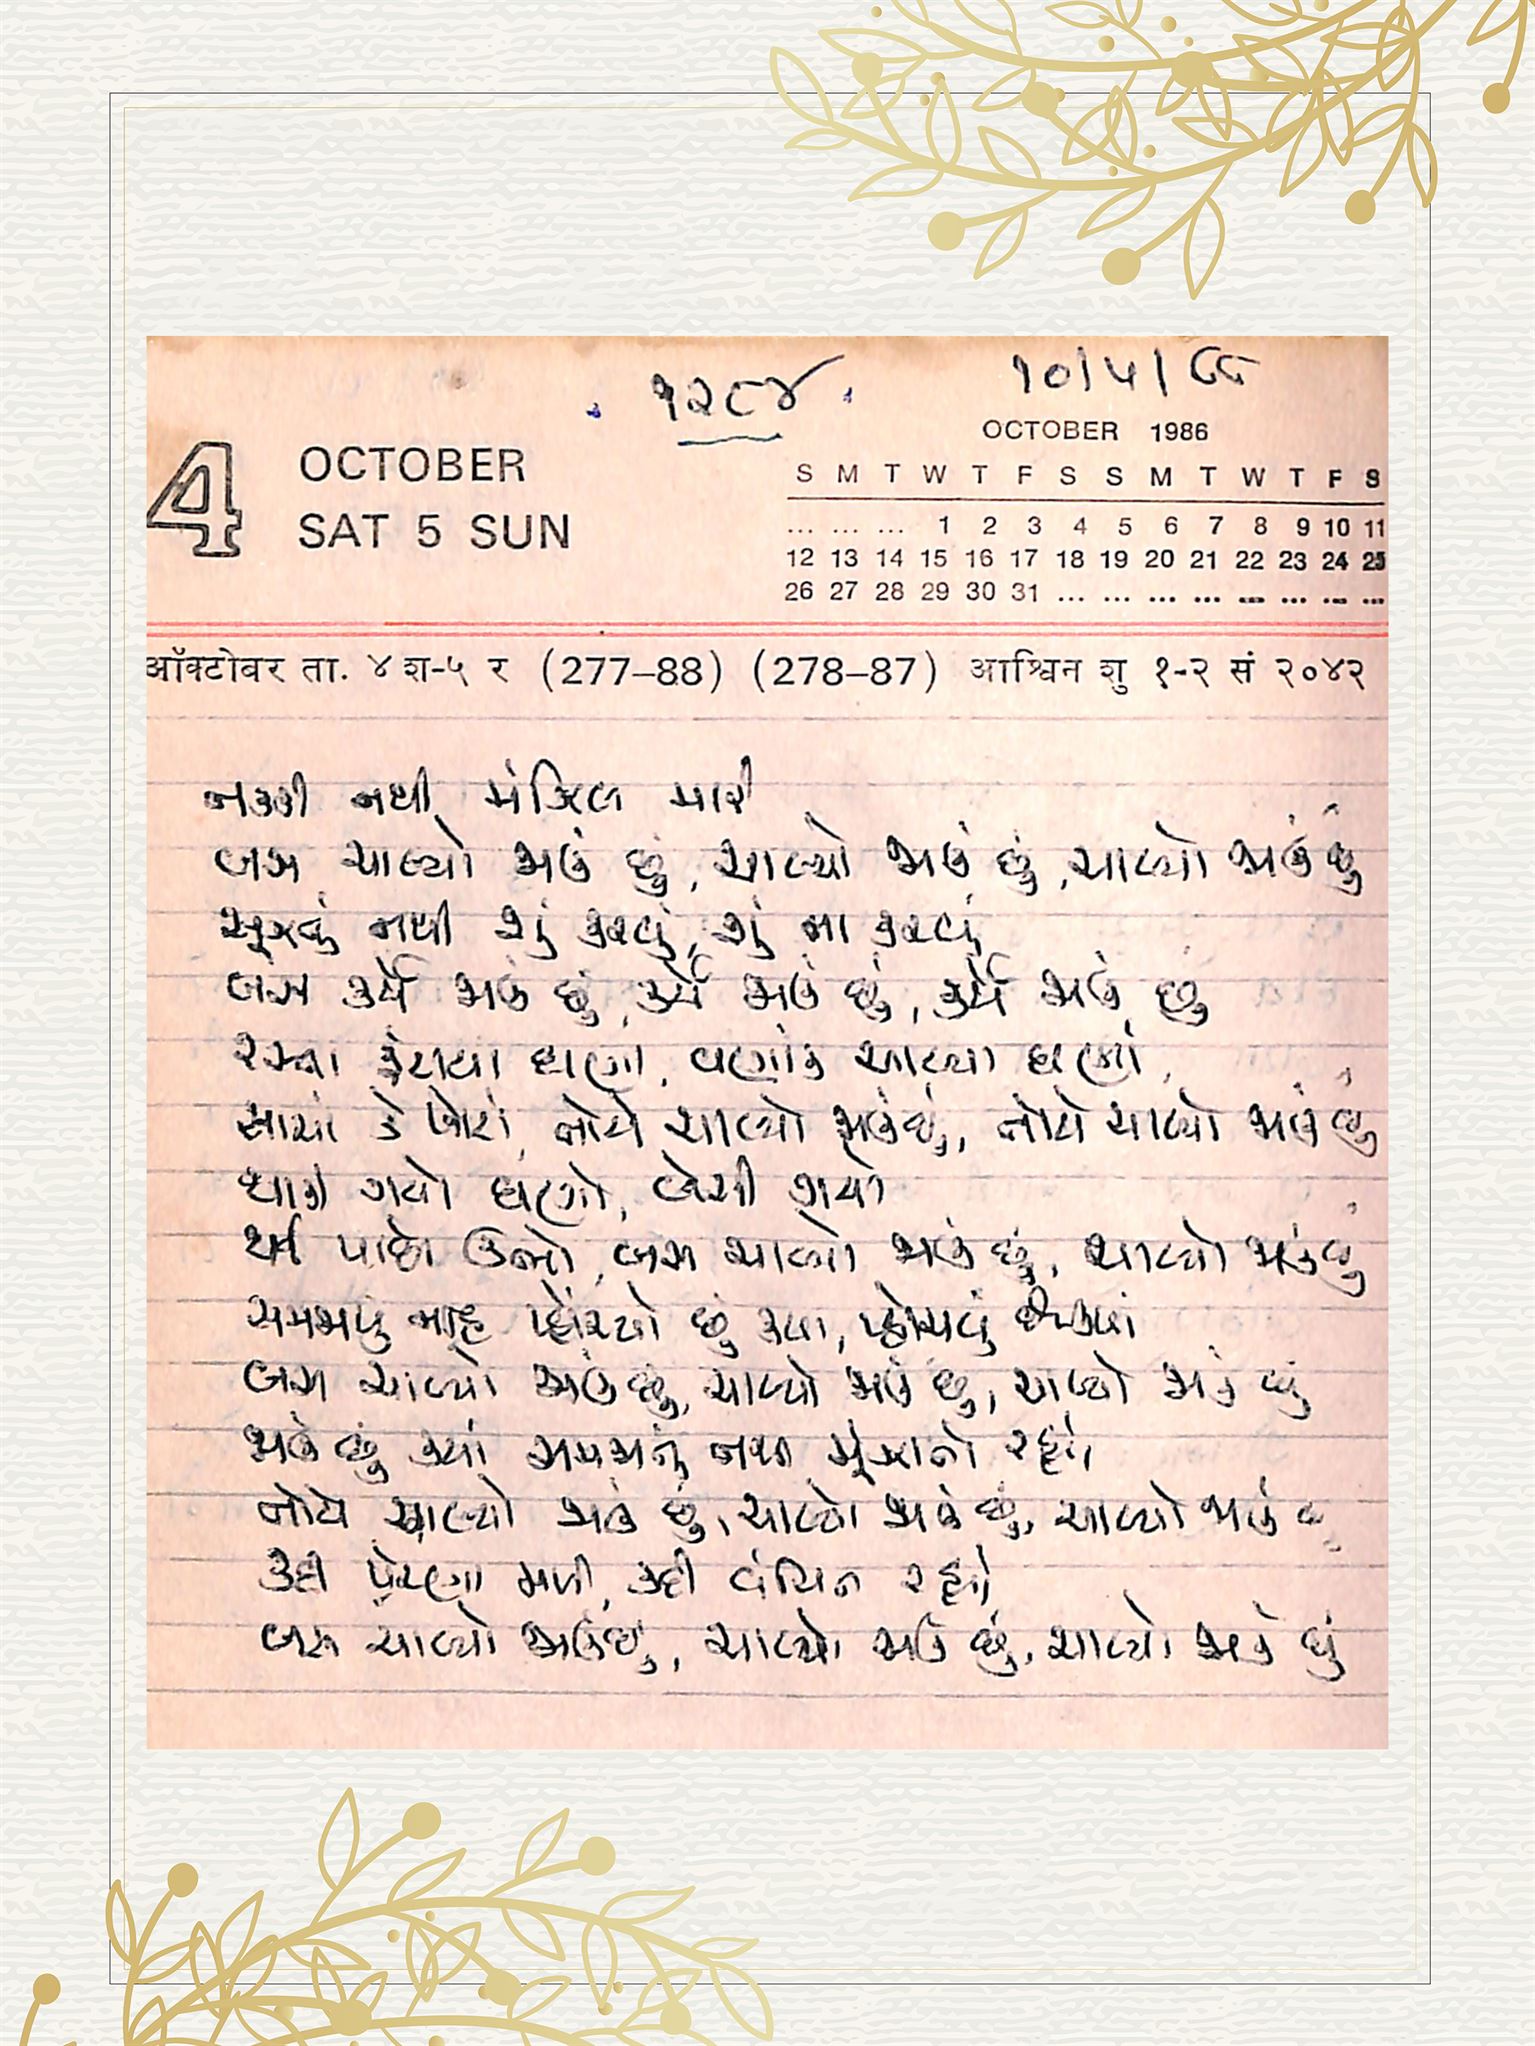 ૧૨૮૪
૧૦/૫/૮૮
OCTOBER 1986
4 OCTOBER
SAT 5 SUN
S M T W T F S S M T W T F S
... ... ... 1 2 3 4 5 6 7 8 9 10 11
12 13 14 15 16 17 18 19 20 21 22 23 24 25
26 27 28 29 30 31 ... ... ... ... ... ... ... ...
ऑक्टोबर ता. ४ श-५ र (277–88) (278–87) आश्विन शु १-२ सं २०४२
નક્કી નથી મંઝિલ મારી
બસ ચાલ્યો જાઉં છું, ચાલ્યો જાઉં છું, ચાલ્યો જાઉં છું
સૂઝતું નથી શું કરવું, શું ના કરવું
બસ કર્યે જાઉં છું, કર્યે જાઉં છું, કર્યે જાઉં છું
રસ્તા ફંટાયા ઘણાં, વળાંક આવ્યા ઘણાં,
સાચાં કે ખોટાં, તોયે ચાલ્યો જાઉં છું, તોયે ચાલ્યો જાઉં છું
થાકી ગયો ઘણો, બેસી ગયો
થઈ પાછો ઊભો, બસ ચાલ્યો જાઉં છું, ચાલ્યો જાઉં છું
સમજાયું નહિ પહોંચ્યો છું ક્યાં, પહોંચવું છે ક્યાં
બસ ચાલ્યો જાઉં છું, ચાલ્યો જાઉં છું, ચાલ્યો જાઉં છું
જાઉં છું ક્યાં સમજાતું નથી મૂંઝાતો રહ્યો,
તોયે ચાલ્યો જાઉં છું, ચાલ્યો જાઉં છું, ચાલ્યો જાઉં છું
કદી પ્રેરણા મળી, કદી વંચિત રહ્યો
બસ ચાલ્યો જાઉં છું, ચાલ્યો જાઉં છું, ચાલ્યો જાઉં છું